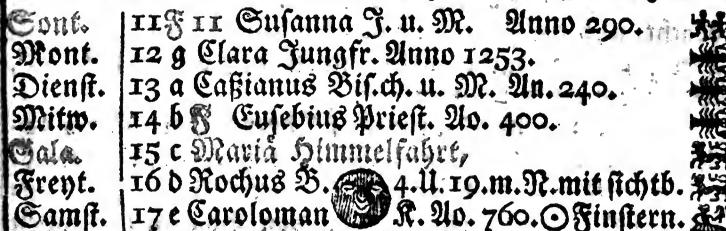 Sont. 11 F 11 Susanna J. u. M. Anno 290.
Mont. 12 g Clara Jungfr. Anno 1253.
Dienst. 13 a Caßianus Bisch. u. M. An. 240.
Mitw. 14 b F Eusebius Priest. Ao. 400.
Gala. 15 c Mariä Himmelfahrt,
Freyt. 16 d Rochus B. 4. U. 19. m. N. mit sichtb.
Samst. 17 e Caroloman K. Ao. 760. ☉ Finstern.